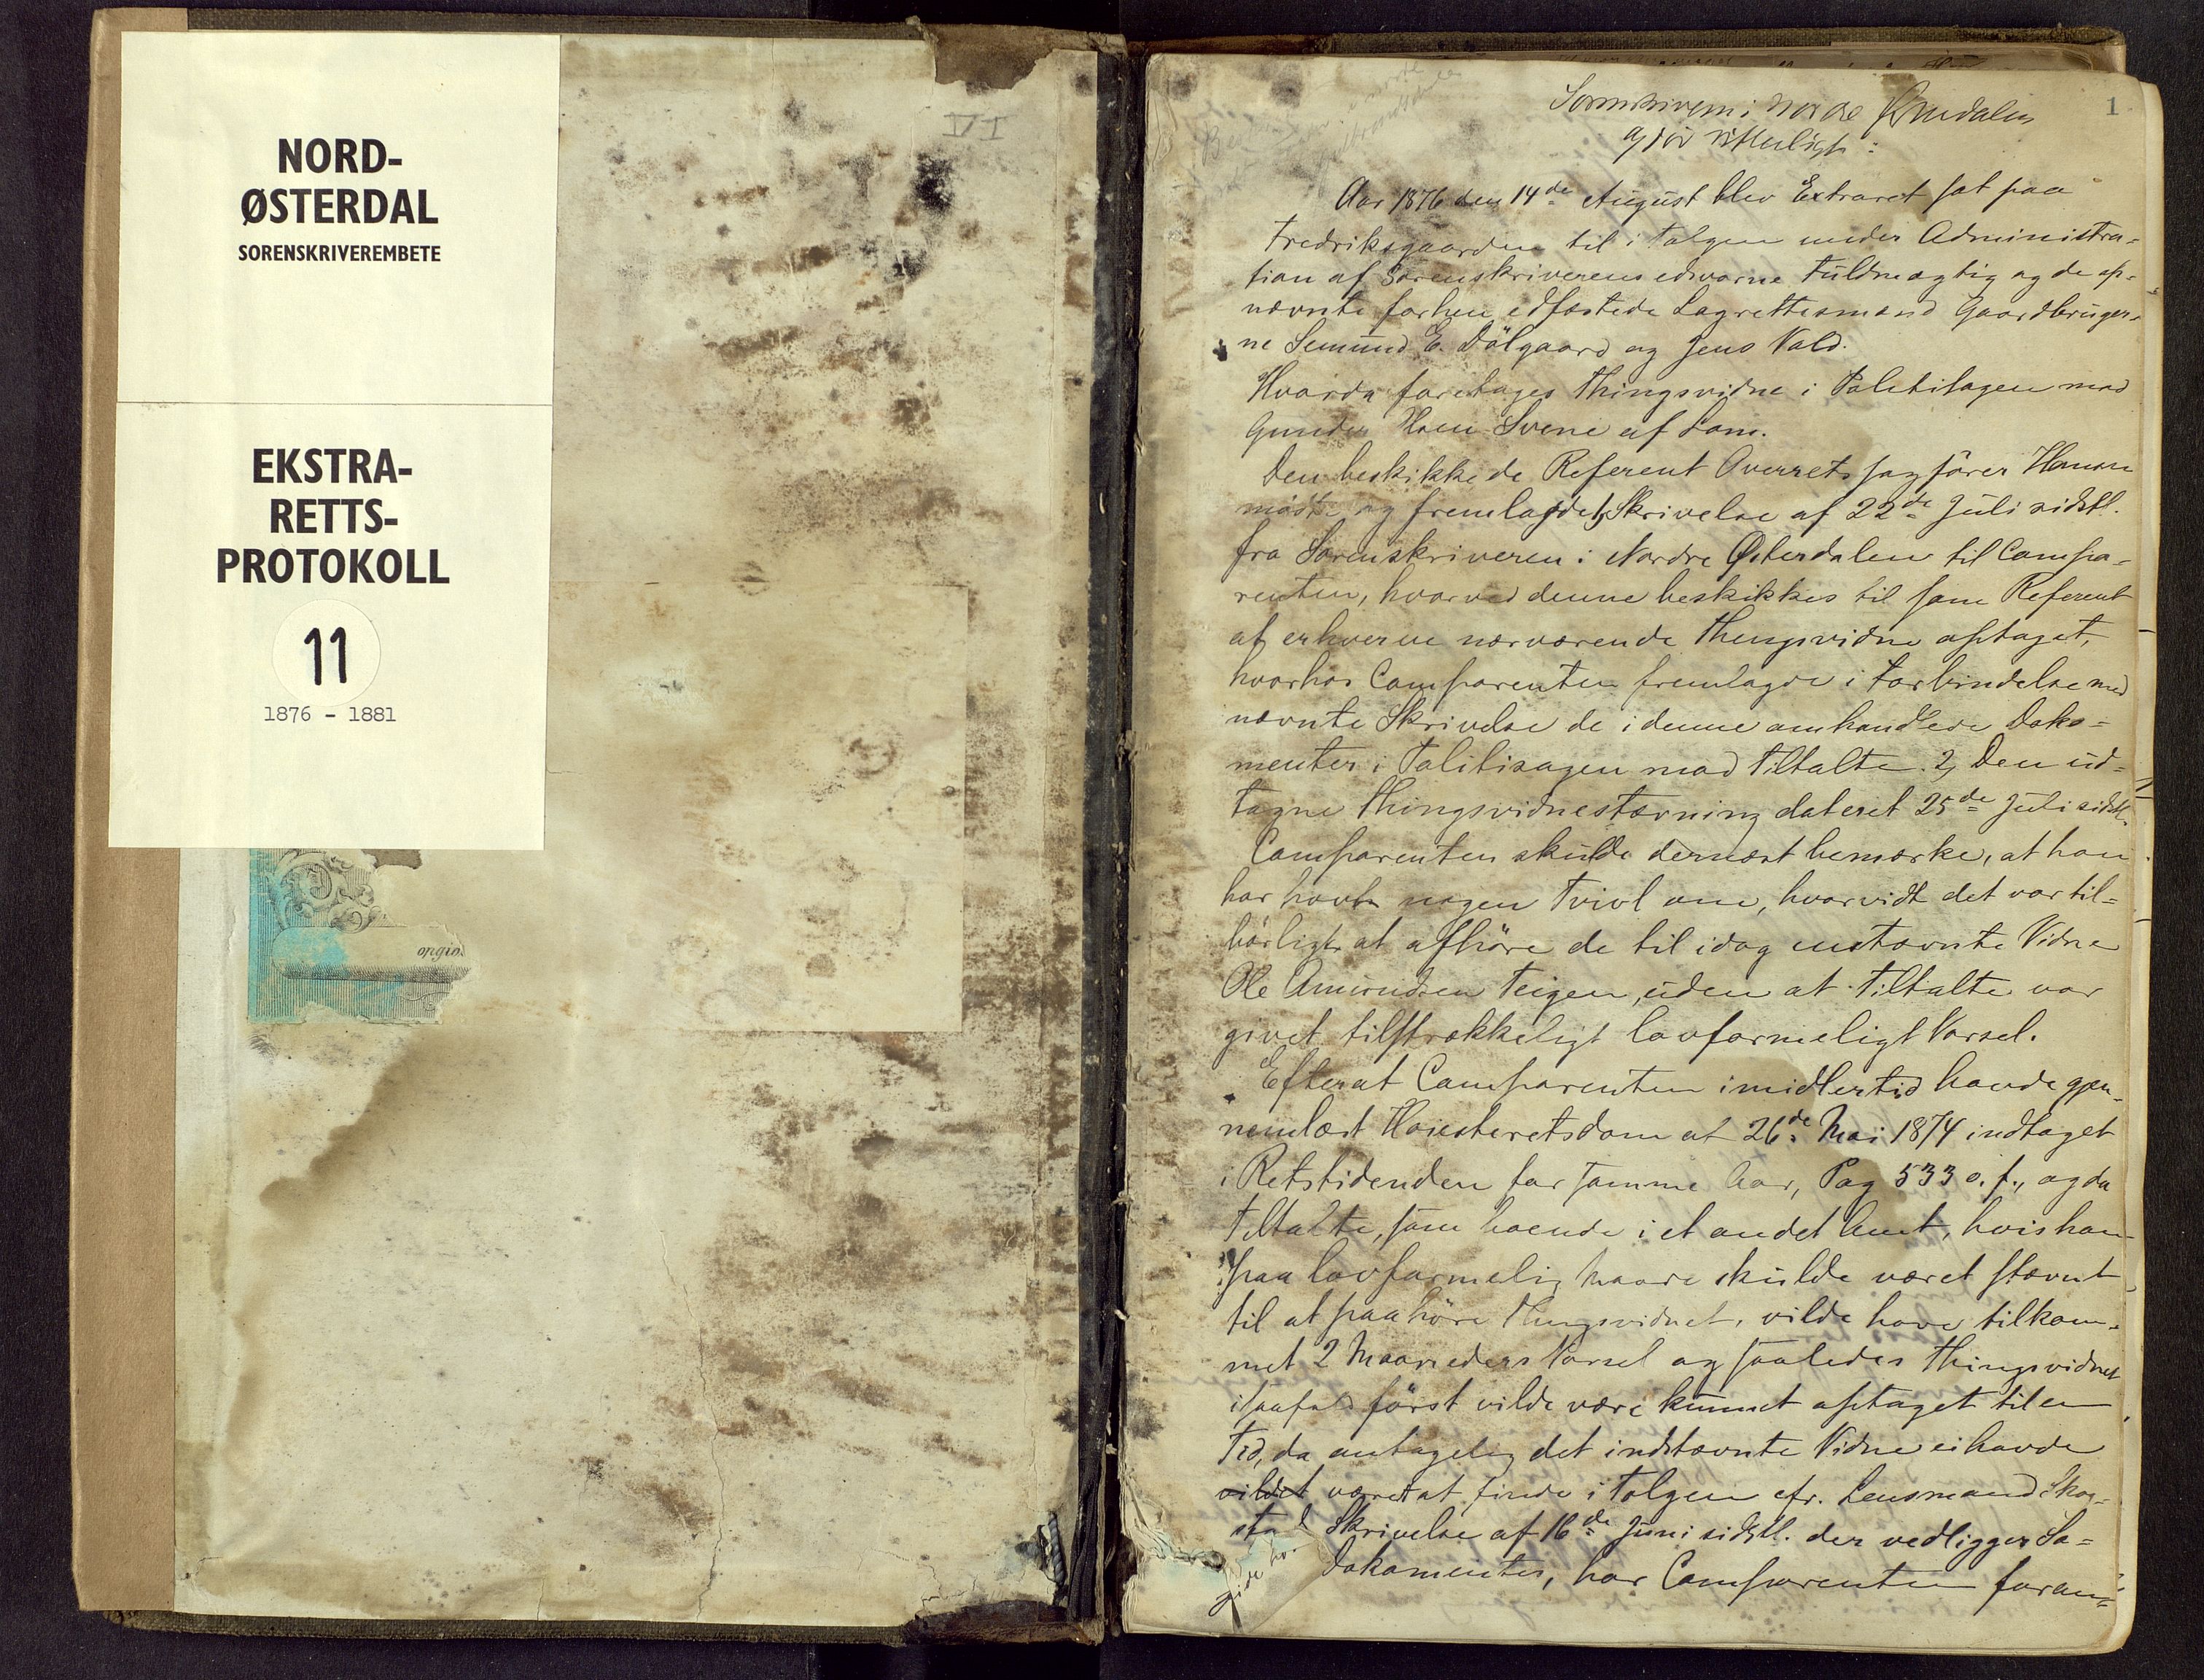 NORD-
ØSTERDAL
SORENSKRIVEREMBETE
EKSTRA-
RETTS-
PROTOKOLL
11
1876 - 1881
VI
1
Sorenskriveren i Nordre Østerdalen
gjør vitterligt:
Aar 1876 den 14de August blev Extraret sat paa
Fredriksgaarden til i Tolgen under Administra-
tion af Sorenskriverens edsvorne Fuldmægtig og de op-
nævnte forhen edfæstede Lagrettesmænd Gaardbruger-
ne Semund E. Dølgaard og Jens Vold.
Hvorda foretages Thingsvidne i Politisagen mod
Gunder Svene af Lom.
Den beskikkede Referent Overretssagfører Hanson
mødte og fremlagde 1, Skrivelse af 22de Juli sidstl.
fra Sorenskriveren i Nordre Østerdalen til Compa-
renten, hvorved denne beskikkes til som Referent
at erhverve nærværende Thingsvidne optaget,
hvorhos Comparenten fremlagde i Forbindelse med
nævnte Skrivelse de i denne omhandlede Doko-
menter i Politisagen mod Tiltalte. 2, Den ud-
tagne Thingsvidnestævning dateret 25de Juli sidstl.
Comparenten skulde dernæst bemærke, at han
har havt nogen Tvivl om, hvorvidt det var til-
børligt at afhøre de til idag indstævnte Vidne
Ole Amundsen Teigen, uden at Tiltalte var
givet tilstrækkeligt lovformeligt Varsel.
Efterat Comparenten imidlertid havde gjen-
nemlæst Høiesteretsdom af 26de Mai 1874 indtaget
i Retstidenden for samme Aar, Pag 533 o. f., og da
Tiltalte, som boende i et andet Amt, hvis han
paa lovformelig Maade skulde været stævnt
til at paahøre Thingsvidnet, vilde have tilkom-
met 2 Maaneders Varsel og saaledes Thingsvidnet
isaafald først vilde være kunnet optaget til en
Tid, da antagelig det indstævnte Vidne ei havde
vildet været at finde i Tolgen cfr. Lensmand Skog-
stad Skrivelse af 16de Juni sidstl. der vedligger Sa-
Dokamenter, har Comparenten foran-